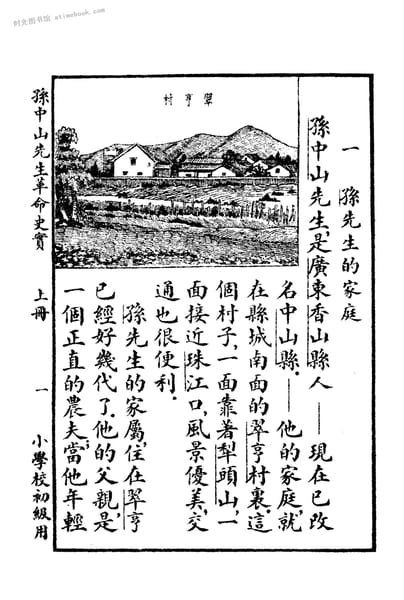 时光图书馆 atimebook.com
一 孫先生的家庭
孫中山先生，是廣東香山縣人——現在已改
名中山縣。——他的家庭，就
在縣城南面的翠亨村裏。這
個村子，一面靠著犁頭山，一
面接近珠江口，風景優美，交
通也很便利。
孫先生的家屬，住在翠亨
已經好幾代了。他的父親，是
一個正直的農夫；當他年輕
翠亨村
孫中山先生革命史實 上冊 一 小學校初級用